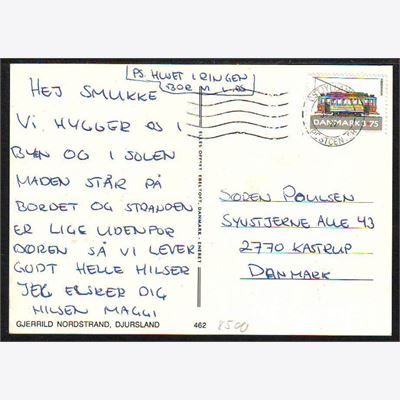 PS. HUSET I RINGEN
BOR M
HEJ SMUKKE
VI HYGGER OS I
BYEN OG I SOLEN
MADEN STÅR PÅ
BORDET OG STRANDEN
ER LIGE UDENFOR
DØREN SÅ VI LEVER
GODT HELLE HILSER
JEG ELSKER DIG
HILSEN MAGGI
GJERRILD NORDSTRAND, DJURSLAND
462
8500
DANMARK 3.75
SØREN POULSEN
SYVSTJERNE ALLE 43
2770 KASTRUP
DANMARK